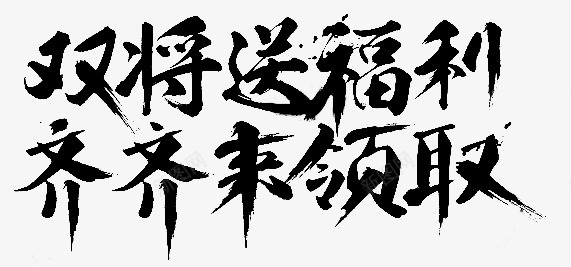 双将送福利
齐齐来领取